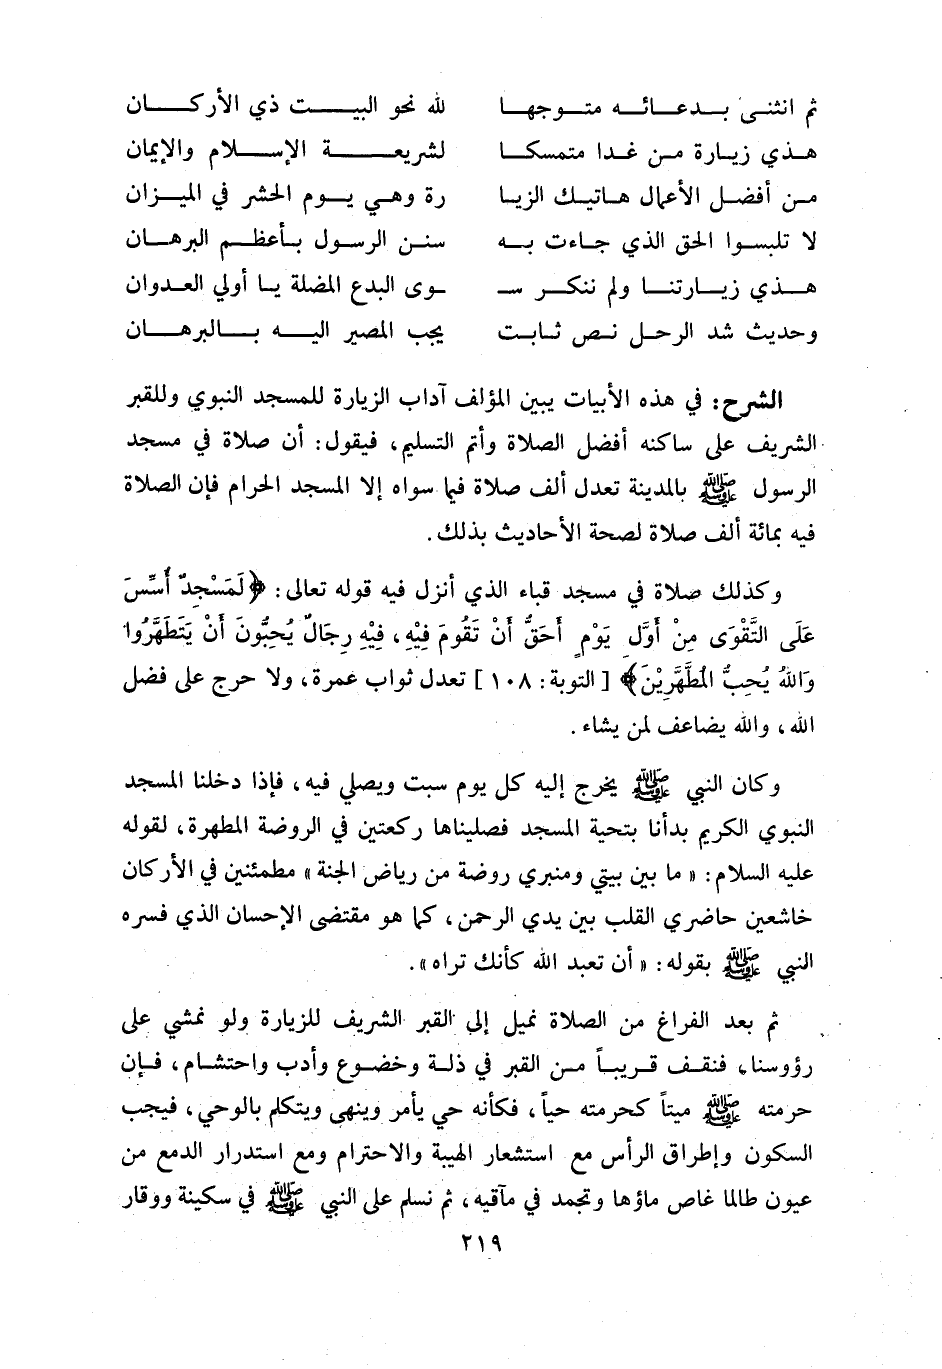 ثم انثنى بدعائه متوجها لله نحو البيت ذي الأركان
هذي زيارة من غدا متمسكا لشريعة الإسلام والإيمان
من أفضل الأعمال هاتيك الزيا رة وهي يوم الحشر في الميزان
لا تلبسوا الحق الذي جاءت به سنن الرسول بأعظم البرهان
هذي زيارتنا ولم ننكر سـ ـوى البدع المضلة يا أولي العدوان
وحديث شد الرحل نص ثابت يجب المصير اليه بالبرهان
الشرح: في هذه الأبيات يبين المؤلف آداب الزيارة للمسجد النبوي وللقبر
الشريف على ساكنه أفضل الصلاة وأتم التسليم، فيقول: أن صلاة في مسجد
الرسول ﷺ بالمدينة تعدل ألف صلاة فيما سواه إلا المسجد الحرام فإن الصلاة
فيه بمائة ألف صلاة لصحة الأحاديث بذلك.
وكذلك صلاة في مسجد قباء الذي أنزل فيه قوله تعالى: ﴿لَمَسْجِدٌ أُسِّسَ
عَلَى التَّقْوَى مِنْ أَوَّلِ يَوْمٍ أَحَقُّ أَنْ تَقُومَ فِيْهِ، فِيْهِ رِجَالٌ يُحِبُّونَ أَنْ يَتَطَهَّرُوا
وَاللهُ يُحِبُّ المُطَّهَّرِيْنَ﴾ [التوبة: ١٠٨] تعدل ثواب عمرة، ولا حرج على فضل
الله، والله يضاعف لمن يشاء.
وكان النبي ﷺ يخرج إليه كل يوم سبت ويصلي فيه، فإذا دخلنا المسجد
النبوي الكريم بدأنا بتحية المسجد فصليناها ركعتين في الروضة المطهرة، لقوله
عليه السلام: «ما بين بيتي ومنبري روضة من رياض الجنة» مطمئنين في الأركان
خاشعين حاضري القلب بين يدي الرحمن، كما هو مقتضى الإحسان الذي فسره
النبي ﷺ بقوله: «أن تعبد الله كأنك تراه».
ثم بعد الفراغ من الصلاة نميل إلى القبر الشريف للزيارة ولو نمشي على
رؤوسنا، فنقف قريباً من القبر في ذلة وخضوع وأدب واحتشام، فإن
حرمته ﷺ ميتاً كحرمته حياً، فكأنه حي يأمر وينهى ويتكلم بالوحي، فيجب
السكون وإطراق الرأس مع استشعار الهيبة والاحترام ومع استدرار الدمع من
عيون طالما غاص ماؤها وتجمد في مآقيه، ثم نسلم على النبي ﷺ في سكينة ووقار
٢١٩